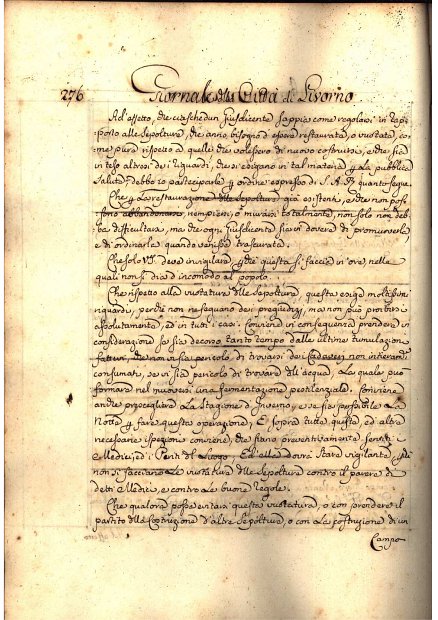 276 Giornale della Città di Livorno
Ad effetto, che ciaschedun Jusdicente sappia come regolarsi in rap-
porto alle sepolture, che anno bisogno d'essere restaurate, o vuotate, co-
me pure rispetto a quelle che volessero di nuovo costruirsi, e che sia
inteso altresì dei riguardi, che si esigano in tal materia per la pubblica
salute, debbo io partecipare per ordine espresso di S. A. R. quanto segue.
Che per la restaurazione delle sepolture già esistenti, e che non pos-
sono abbandonarsi, riempirsi, o murarsi totalmente, non solo non deb-
ba difficultarsi, ma che ogni Jusdicente sia in dovere di promuoverle,
e di ordinarle quando venisse trascurata.
Che solo VS. deve invigilare, per che questa si faccia in ore nelle
quali non si dia d'incomodo al popolo.
Che rispetto alla vuotatura delle sepolture, questa esige molti fini
riguardi, perché non ne seguano dei pregiudizj, ma non può proibirsi
assolutamente, ed in tutti i casi. Conviene in conseguenza prendere in
considerazione se sia decorso tanto tempo dalle ultime tumulazioni
fattevi, che non vi sia pericolo di trovarvi dei Cadaveri non interam.te
consumati, se vi sia pericolo di trovare dell'acqua, la quale può
formare nel muoversi una fermentazione pestilenziale. Conviene
anche prescegliere la stagione d'Inverno, e se sia possibile la
Notte per fare questa operazione, e sopra tutte queste, ed altre
necessarie ispezioni conviene, che siano preventivamente sentiti i
Medici, ed i Periti del Luogo, ed ella dovrà stare vigilante perché
non si facciano le vuotature delle sepolture contro il parere di
detti Medici, e contro le buone regole.
Che qualora possa evitarsi questa vuotatura, o con prendere il
partito della Costruzione d'altre sepolture, o con la costruzione di un
Campo